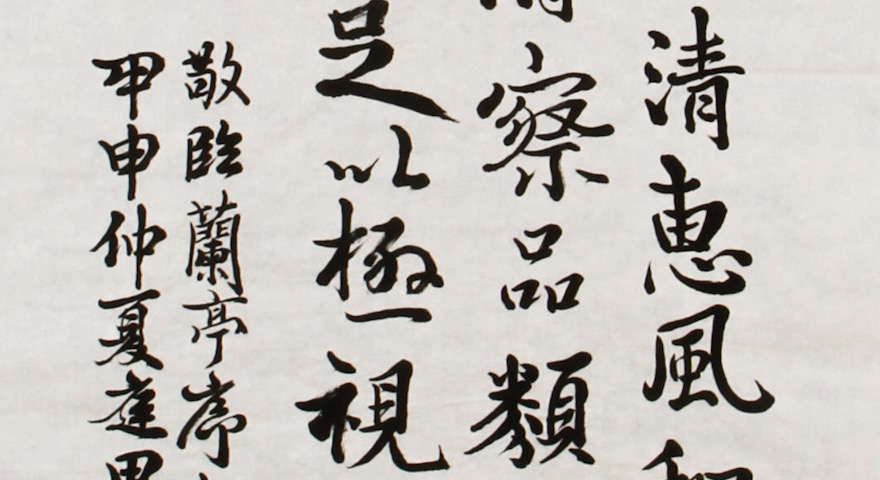 清惠風
察品類
足以極視
敬臨蘭亭序
甲申仲夏